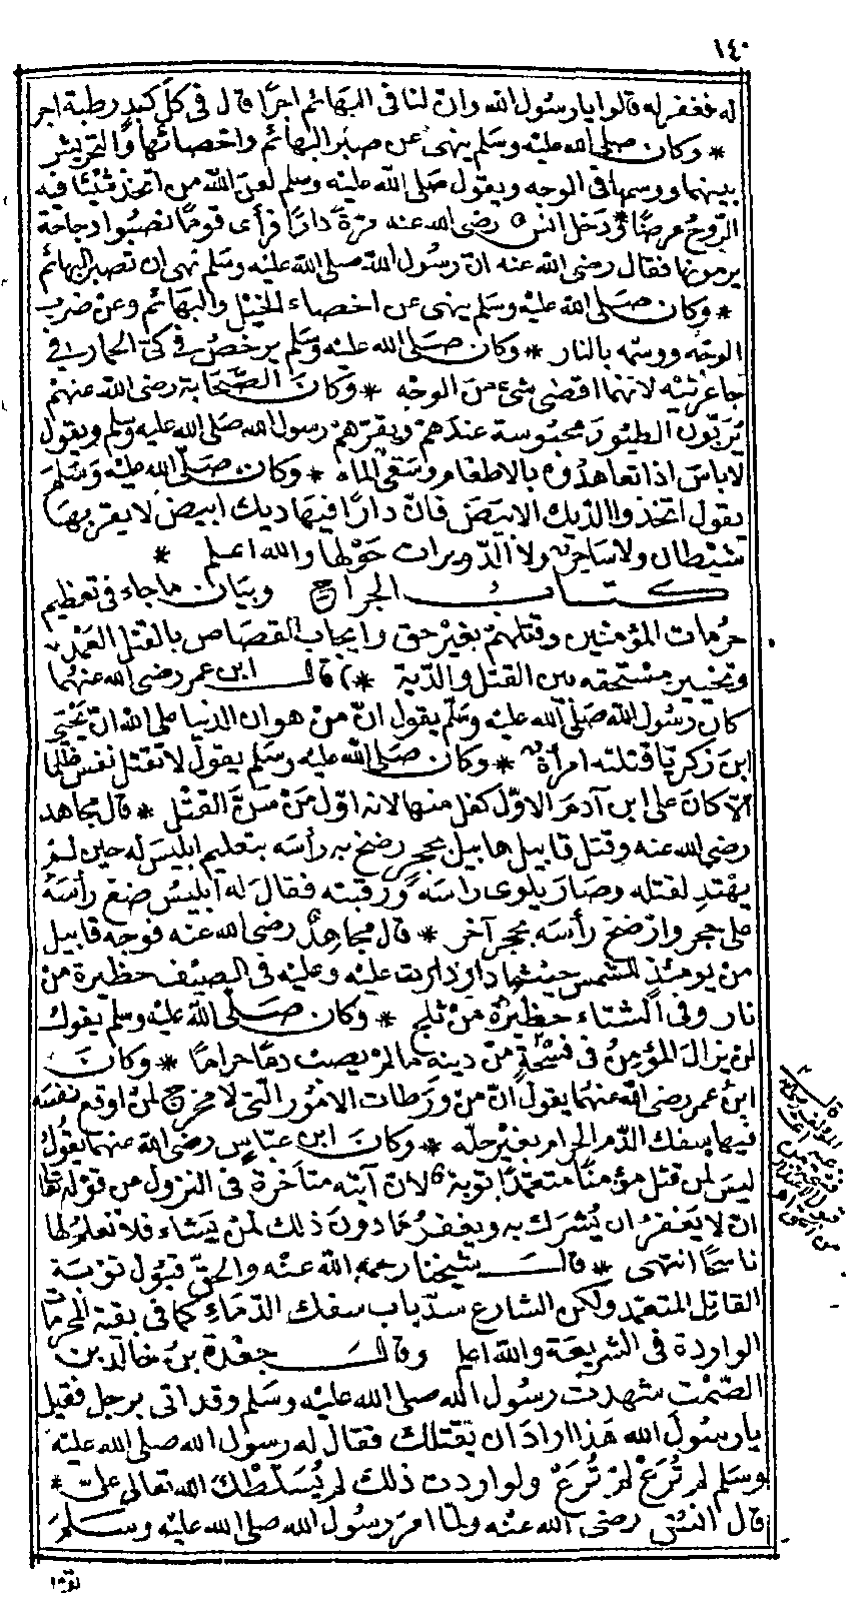 ١٤٠
له فغفر له قالوا يا رسول الله وان لنا فى البهائم اجرا قال فى كل كبد رطبة اجر
* وكان صلى الله عليه وسلم ينهى عن صبر البهائم واخصائها والتحريش
بينها ووسمها فى الوجه ويقول صلى الله عليه وسلم لعن الله من اتخذ شيئا فيه
الروح غرضا ودخل انس رضى الله عنه مرة دارا فرأى قوما نصبوا دجاجة
يرمونها فقال رضى الله عنه ان رسول الله صلى الله عليه وسلم نهى ان تصبر البهائم
* وكان صلى الله عليه وسلم ينهى عن اخصاء الخيل والبهائم وعن ضرب
الوجه ووسمه بالنار * وكان صلى الله عليه وسلم يرخص فى كى الحمار فى
جاعرتيه لانهما اقصى شىء من الوجه * وكان الصحابة رضى الله عنهم
يربون الطيور محبوسة عندهم ويقرهم رسول الله صلى الله عليه وسلم ويقول
لا باس اذا تعاهدوه بالاطعام وسقى الماء * وكان صلى الله عليه وسلم
يقول اتخذوا الديك الابيض فان دارا فيها ديك ابيض لا يقربها
شيطان ولا ساحر ولا الدويرات حولها والله اعلم *
كتاب الجراح وبيان ما جاء فى تعظيم
حرمات المؤمنين وقتلهم بغير حق وايجاب القصاص بالقتل العمد
وتخيير مستحقه بين القتل والدية * قال ابن عمر رضى الله عنهما
كان رسول الله صلى الله عليه وسلم يقول ان من هوان الدنيا على الله ان يحيى
ابن زكريا قتلته امرأة * وكان صلى الله عليه وسلم يقول لا تقتل نفس ظلما
الا كان على ابن آدم الاول كفل منها لانه اول من سن القتل * قال مجاهد
رضى الله عنه وقتل قابيل هابيل بحجر رضخ به رأسه بتعليم ابليس له حين لم
يهتد لقتله وصار يلوى راسه ورقبته فقال له ابليس ضع رأسه
على حجر وارضخ رأسه بحجر آخر * قال مجاهد رضى الله عنه فوجه قابيل
من يومئذ للشمس حيثما دارت دارت عليه وعليه فى الصيف حظيرة من
نار وفى الشتاء حظيرة من ثلج * وكان صلى الله عليه وسلم يقول
لن يزال المؤمن فى فسحة من دينه ما لم يصب دما حراما * وكان
ابن عمر رضى الله عنهما يقول ان من ورطات الامور التى لا مخرج لمن اوقع نفسه
فيها سفك الدم الحرام بغير حله * وكان ابن عباس رضى الله عنهما يقول
ليس لمن قتل مؤمنا متعمدا توبة لان آيته متأخرة فى النزول من قوله تعالى
ان لا يغفر ان يشرك به ويغفر ما دون ذلك لمن يشاء فلا نعلم لها
ناسخا انتهى * قال شيخنا رحمه الله عنه والحق قبول توبة
القاتل المتعمد ولكن الشارع سد باب سفك الدماء كما فى بقية المحرمات
الواردة فى الشريعة والله اعلم وقال جعدة بن خالد بن
الصمت شهدت رسول الله صلى الله عليه وسلم وقد اتى برجل فقيل
يا رسول الله هذا اراد ان يقتلك فقال له رسول الله صلى الله عليه
وسلم لم ترع لم ترع ولو اردت ذلك لم يسلطك الله تعالى على *
قال انس رضى الله عنه ولما امر رسول الله صلى الله عليه وسلم
قال
المؤلف رضى الله